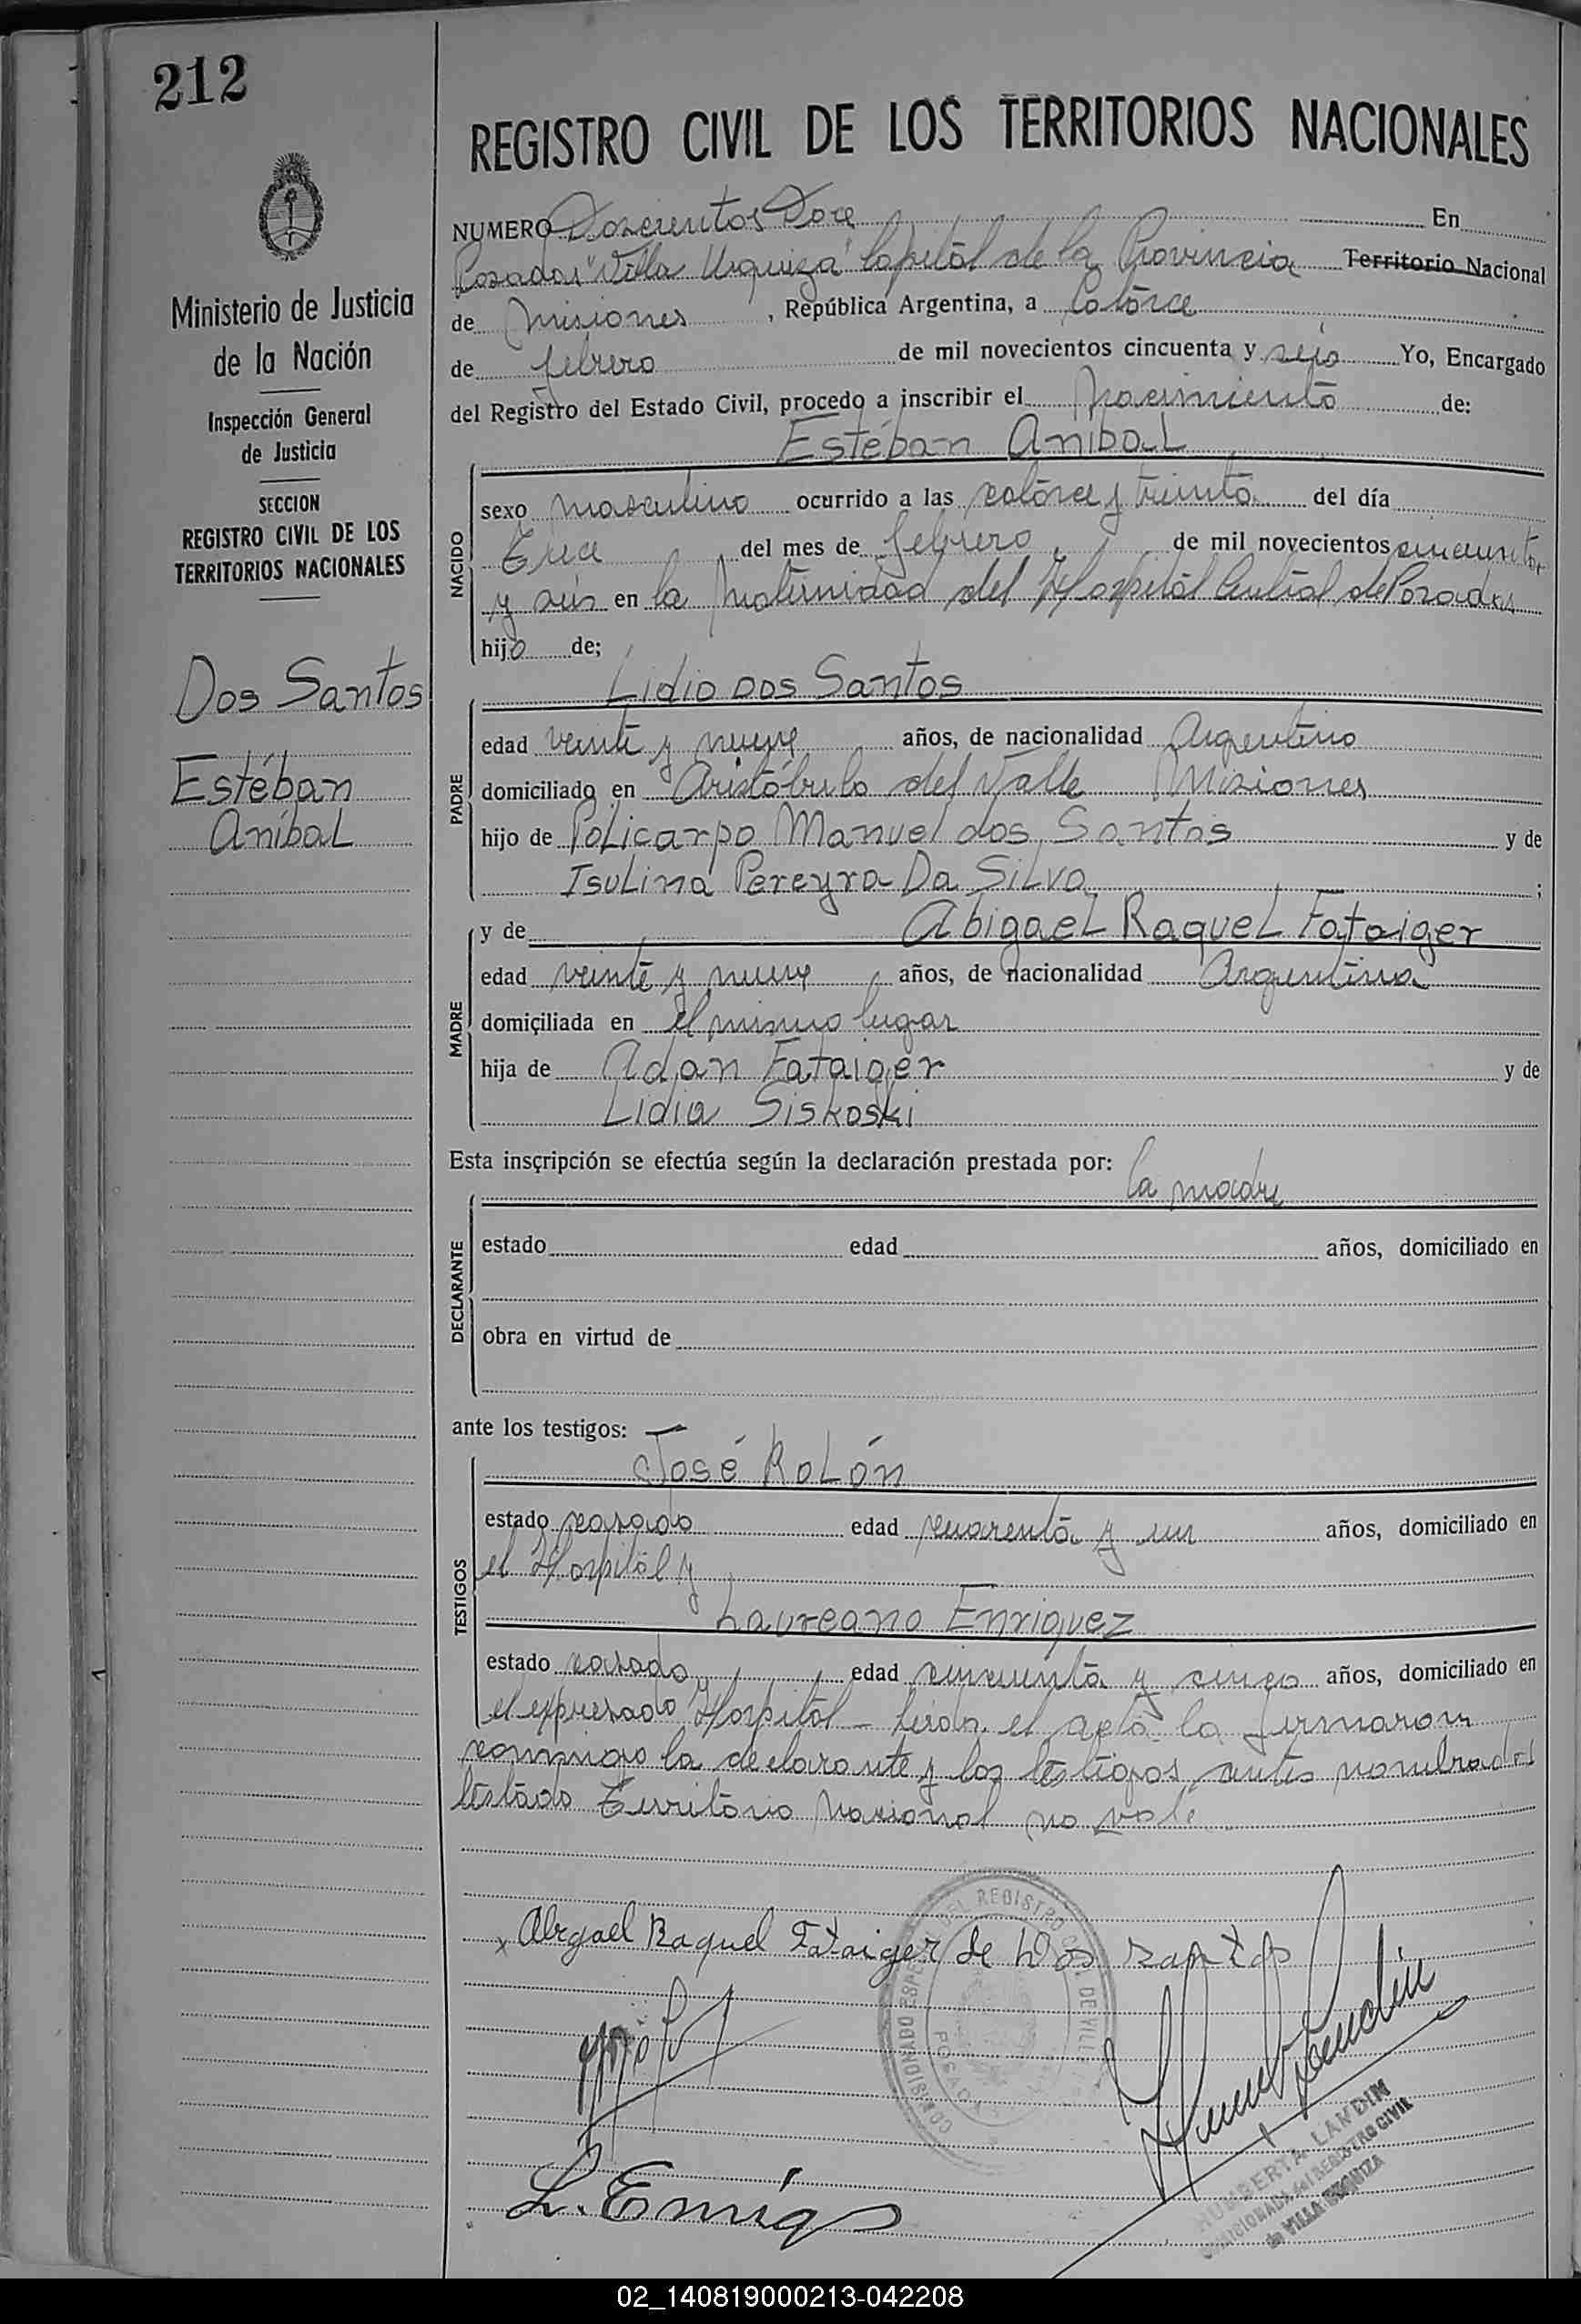 212
REGISTRO CIVIL DE LOS TERRITORIOS NACIONALES
NUMERO Doscientos Doce En
Posadas "Villa Urquiza" Capital de la Provincia Territorio Nacional
de Misiones, República Argentina, a Catorce
de febrero de mil novecientos cincuenta y seis Yo, Encargado
del Registro del Estado Civil, procedo a inscribir el Nacimiento de:
Estéban Anibal
NACIDO
sexo masculino ocurrido a las catorce y treinta del día
Trece del mes de febrero de mil novecientos cincuenta
y seis en la Maternidad del Hospital Central de Posadas
hijo de;
Lidio Dos Santos
PADRE
edad veinte y nueve años, de nacionalidad Argentino
domiciliado en Aristóbulo del Valle Misiones
hijo de Policarpo Manuel dos Santos y de
Isulina Pereyra Da Silva;
y de Abigael Raquel Fataiger
MADRE
edad veinte y nueve años, de nacionalidad Argentina
domiçiliada en el mismo lugar
hija de Adan Fataiger y de
Lidia Siskoski
Esta insçripción se efectúa según la declaración prestada por:
la madre
DECLARANTE
estado edad años, domiciliado en
obra en virtud de
ante los testigos:
José Rolón
TESTIGOS
estado casado edad cuarenta y un años, domiciliado en
el Hospital y
Laureano Enriquez
estado casado edad cincuenta y cinco años, domiciliado en
el expresado Hospital - Leida el acta la firmaron
conmigo la declarante y los testigos antes nombrados
testado Territorio Nacional no vale
Abigael Raquel Fataiger de Dos Santos
L. Enriq
HUMBERTA LANDIN
COMISIONADA del REGISTRO CIVIL
de VILLA URQUIZA
Ministerio de Justicia
de la Nación
Inspección General
de Justicia
SECCION
REGISTRO CIVIL DE LOS
TERRITORIOS NACIONALES
Dos Santos
Estéban
Aníbal
02_140819000213-042208